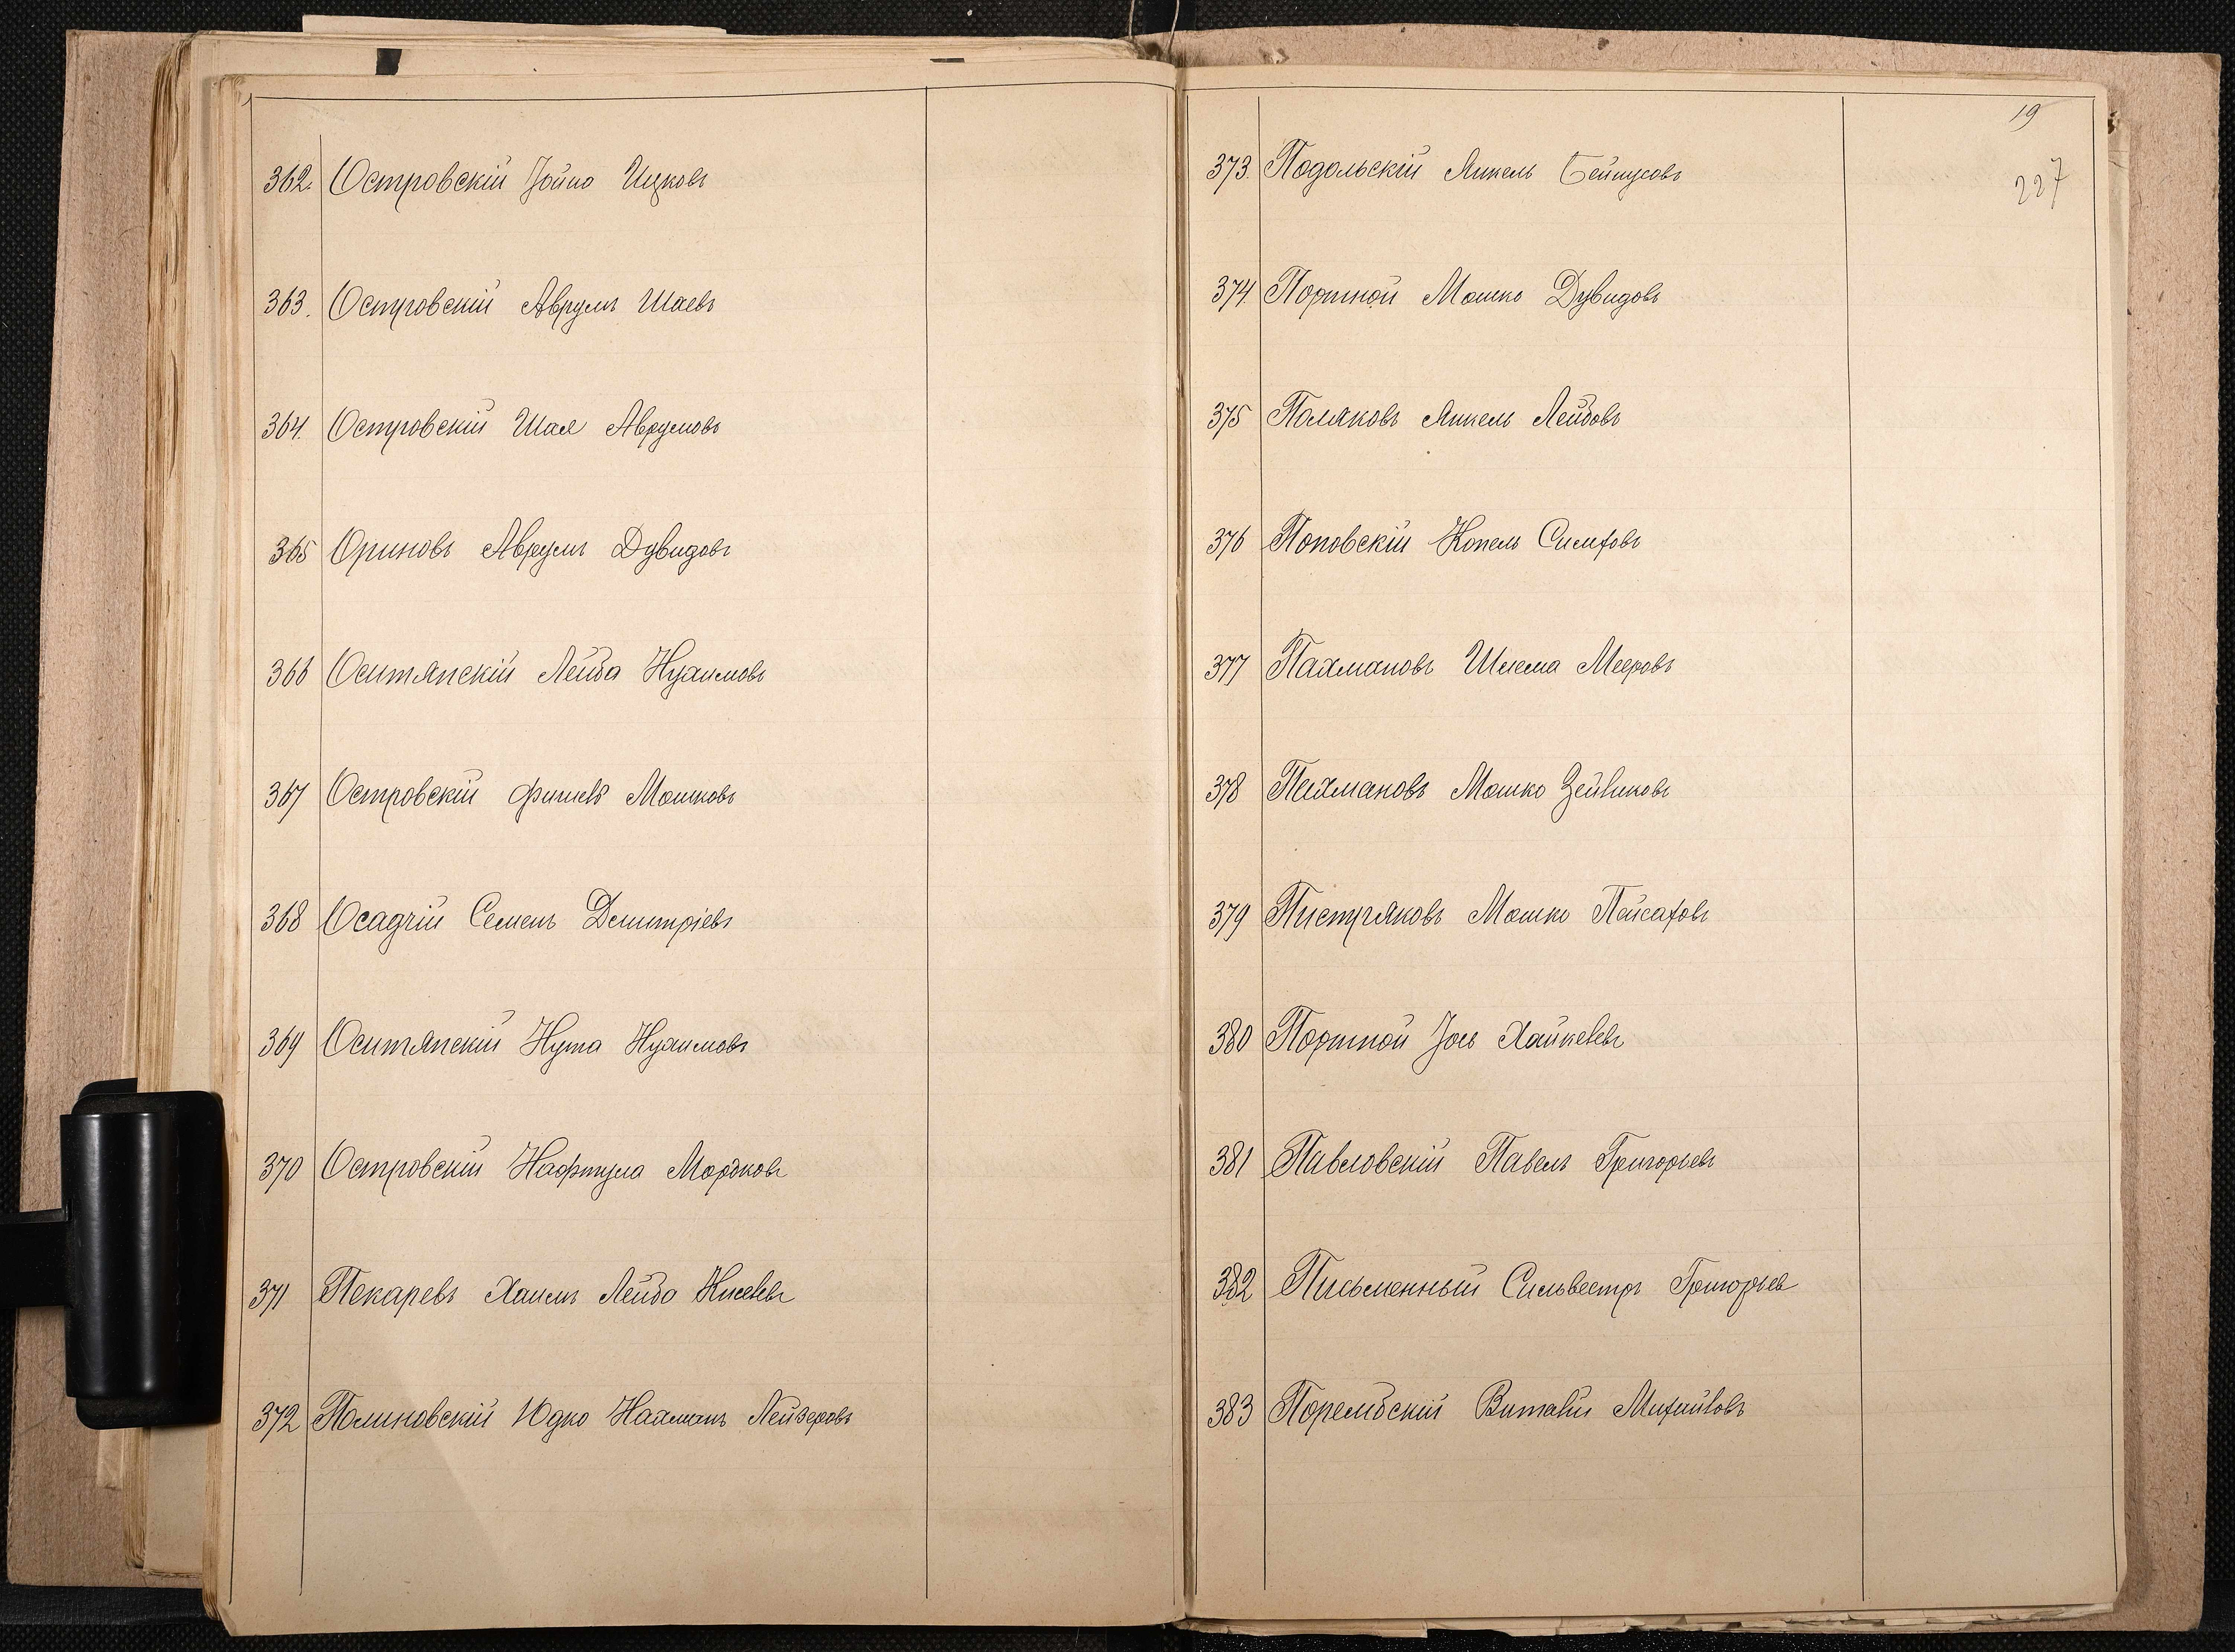 362. Островскій Іойно Ицковъ
363. Островскій Аврумъ Шаевъ
364. Островскій Шая Аврумовъ
365 Ориновъ Аврумъ Дувидовъ
366 Оситянскій Лейба Нухимовъ
367 Островскій Фишель Мошковъ
368 Осадчій Семенъ Дмитріевъ
369 Оситянскій Нута Нухимовъ
370 Островскій Нафтула Мордковъ
371 Пекаревъ Хаимъ Лейба Киселевъ
372 Полиновскій Юдко Нахманъ Лейзеровъ
19
227
373. Подольскій Янкель Бейнусовъ
374 Портной Мошко Дувидовъ
375 Поляковъ Янкель Лейбовъ
376 Поповскій Копель Симховъ
377 Пахмановъ Шлема Мееровъ
378 Пахмановъ Мошко Зейликовъ
379 Пистряковъ Мошко Пейсаховъ
380 Портной Іось Хайкелевъ
381 Павловскій Павелъ Григорьевъ
382 Письменный Сильвестръ Григорьев
383 Порембскій Виталій Михайловъ